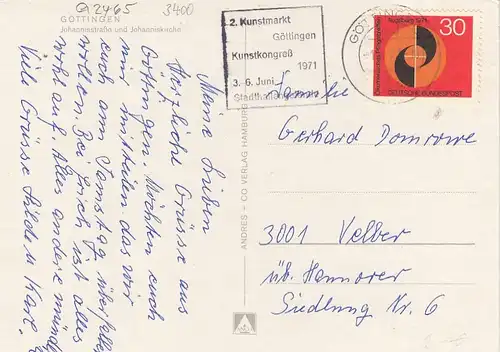 G2465
3400
GÖTTINGEN
Johannisstraße und Johanniskirche
Meine Lieben
Herzliche Grüsse aus
Göttingen. Möchten euch
nur mitteilen das wir
euch am Samstag überfallen
wollen. Bei ist alles
wohl auf. Alles andere mündl.
Viele Grüsse Hilde u Karl.
ANDRES + CO VERLAG HAMBURG
2. Kunstmarkt
Göttingen
Kunstkongreß
1971
3.-6. Juni
Stadthalle
GÖTTINGEN
30
Augsburg 1971
DEUTSCHE BUNDESPOST
Familie
Gerhard Domrowe
3001 Velber
üb. Hannover
Siedlung Nr. 6